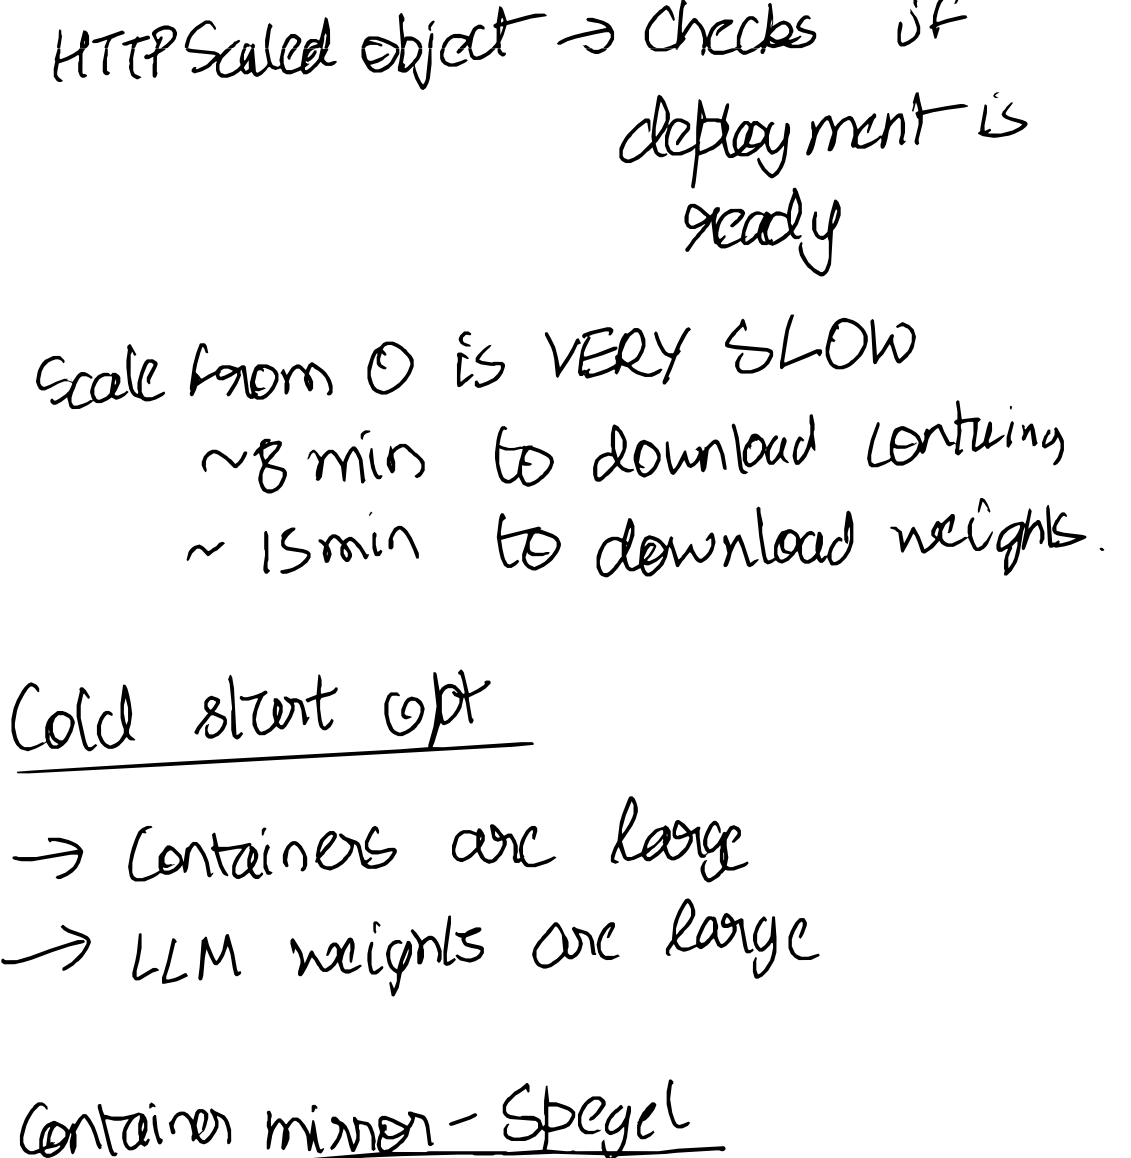 HTTPScaled object → Checks if
deployment is
ready
Scale from 0 is VERY SLOW
~8 min to download
~ 15min to download weights.
Cold start opt
→ Containers are large
→ LLM weights are large
Container mirror - Spegel